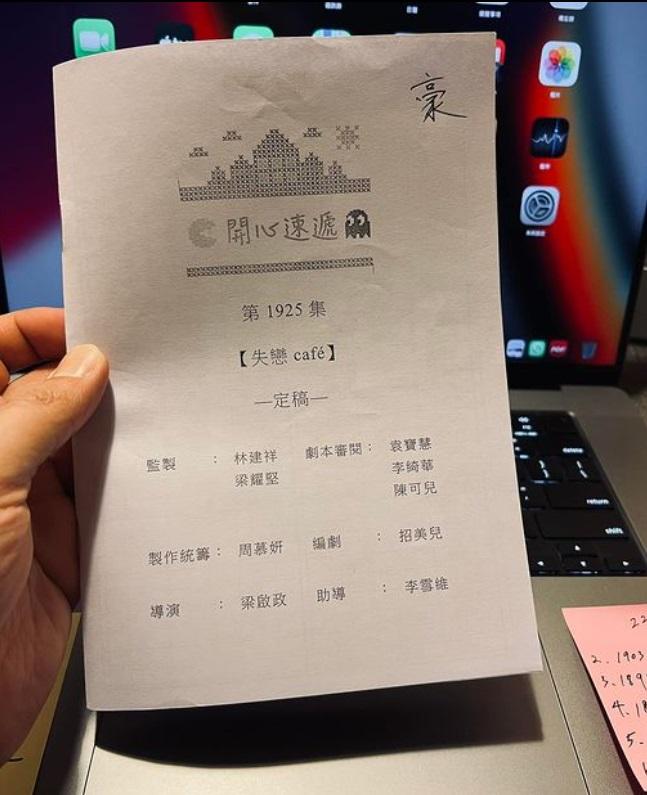 豪
開心速遞
第 1925 集
【失戀 café】
—定稿—
監製 : 林建祥 劇本審閱 : 袁寶慧
梁耀堅 李綺華
陳可兒
製作統籌 : 周慕妍 編劇 : 招美兒
導演 : 梁啟政 助導 : 李雪維
delete
return
shift
PDF
22
2. 1903
3. 189
4. 18
5.